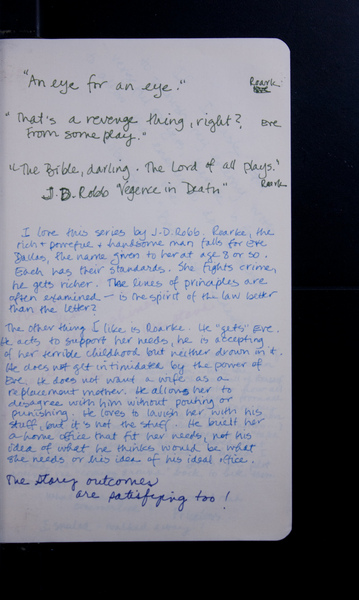 "An eye for an eye." Roarke:
"That's a revenge thing, right? Eve
From some play."
"The Bible, darling. The Lord of all plays." Roarke
J.D. Robb "Vegence in Death"
I love this series by J.D. Robb. Roarke, the
rich + powerful + handsome man falls for Eve
Dallas, the name given to her at age 8 or so.
Each has their standards. She fights crime,
he gets richer. The lines of principles are
often examined — is the spirit of the law better
than the letter?
The other thing I like is Roarke. He "gets" Eve.
He acts to support her needs, he is accepting
of her terrible childhood but neither drown in it.
He does not get intimidated by the power of
Eve. He does not want a wife as a
replacement mother. He allows her to
disagree with him without pouting or
punishing. He loves to lavish her with his
stuff, but it's not the stuff. He built her
a home office that fit her needs, not his
idea of what he thinks would be what
she needs or his idea of his ideal office.
The story outcomes
are satisfying too!